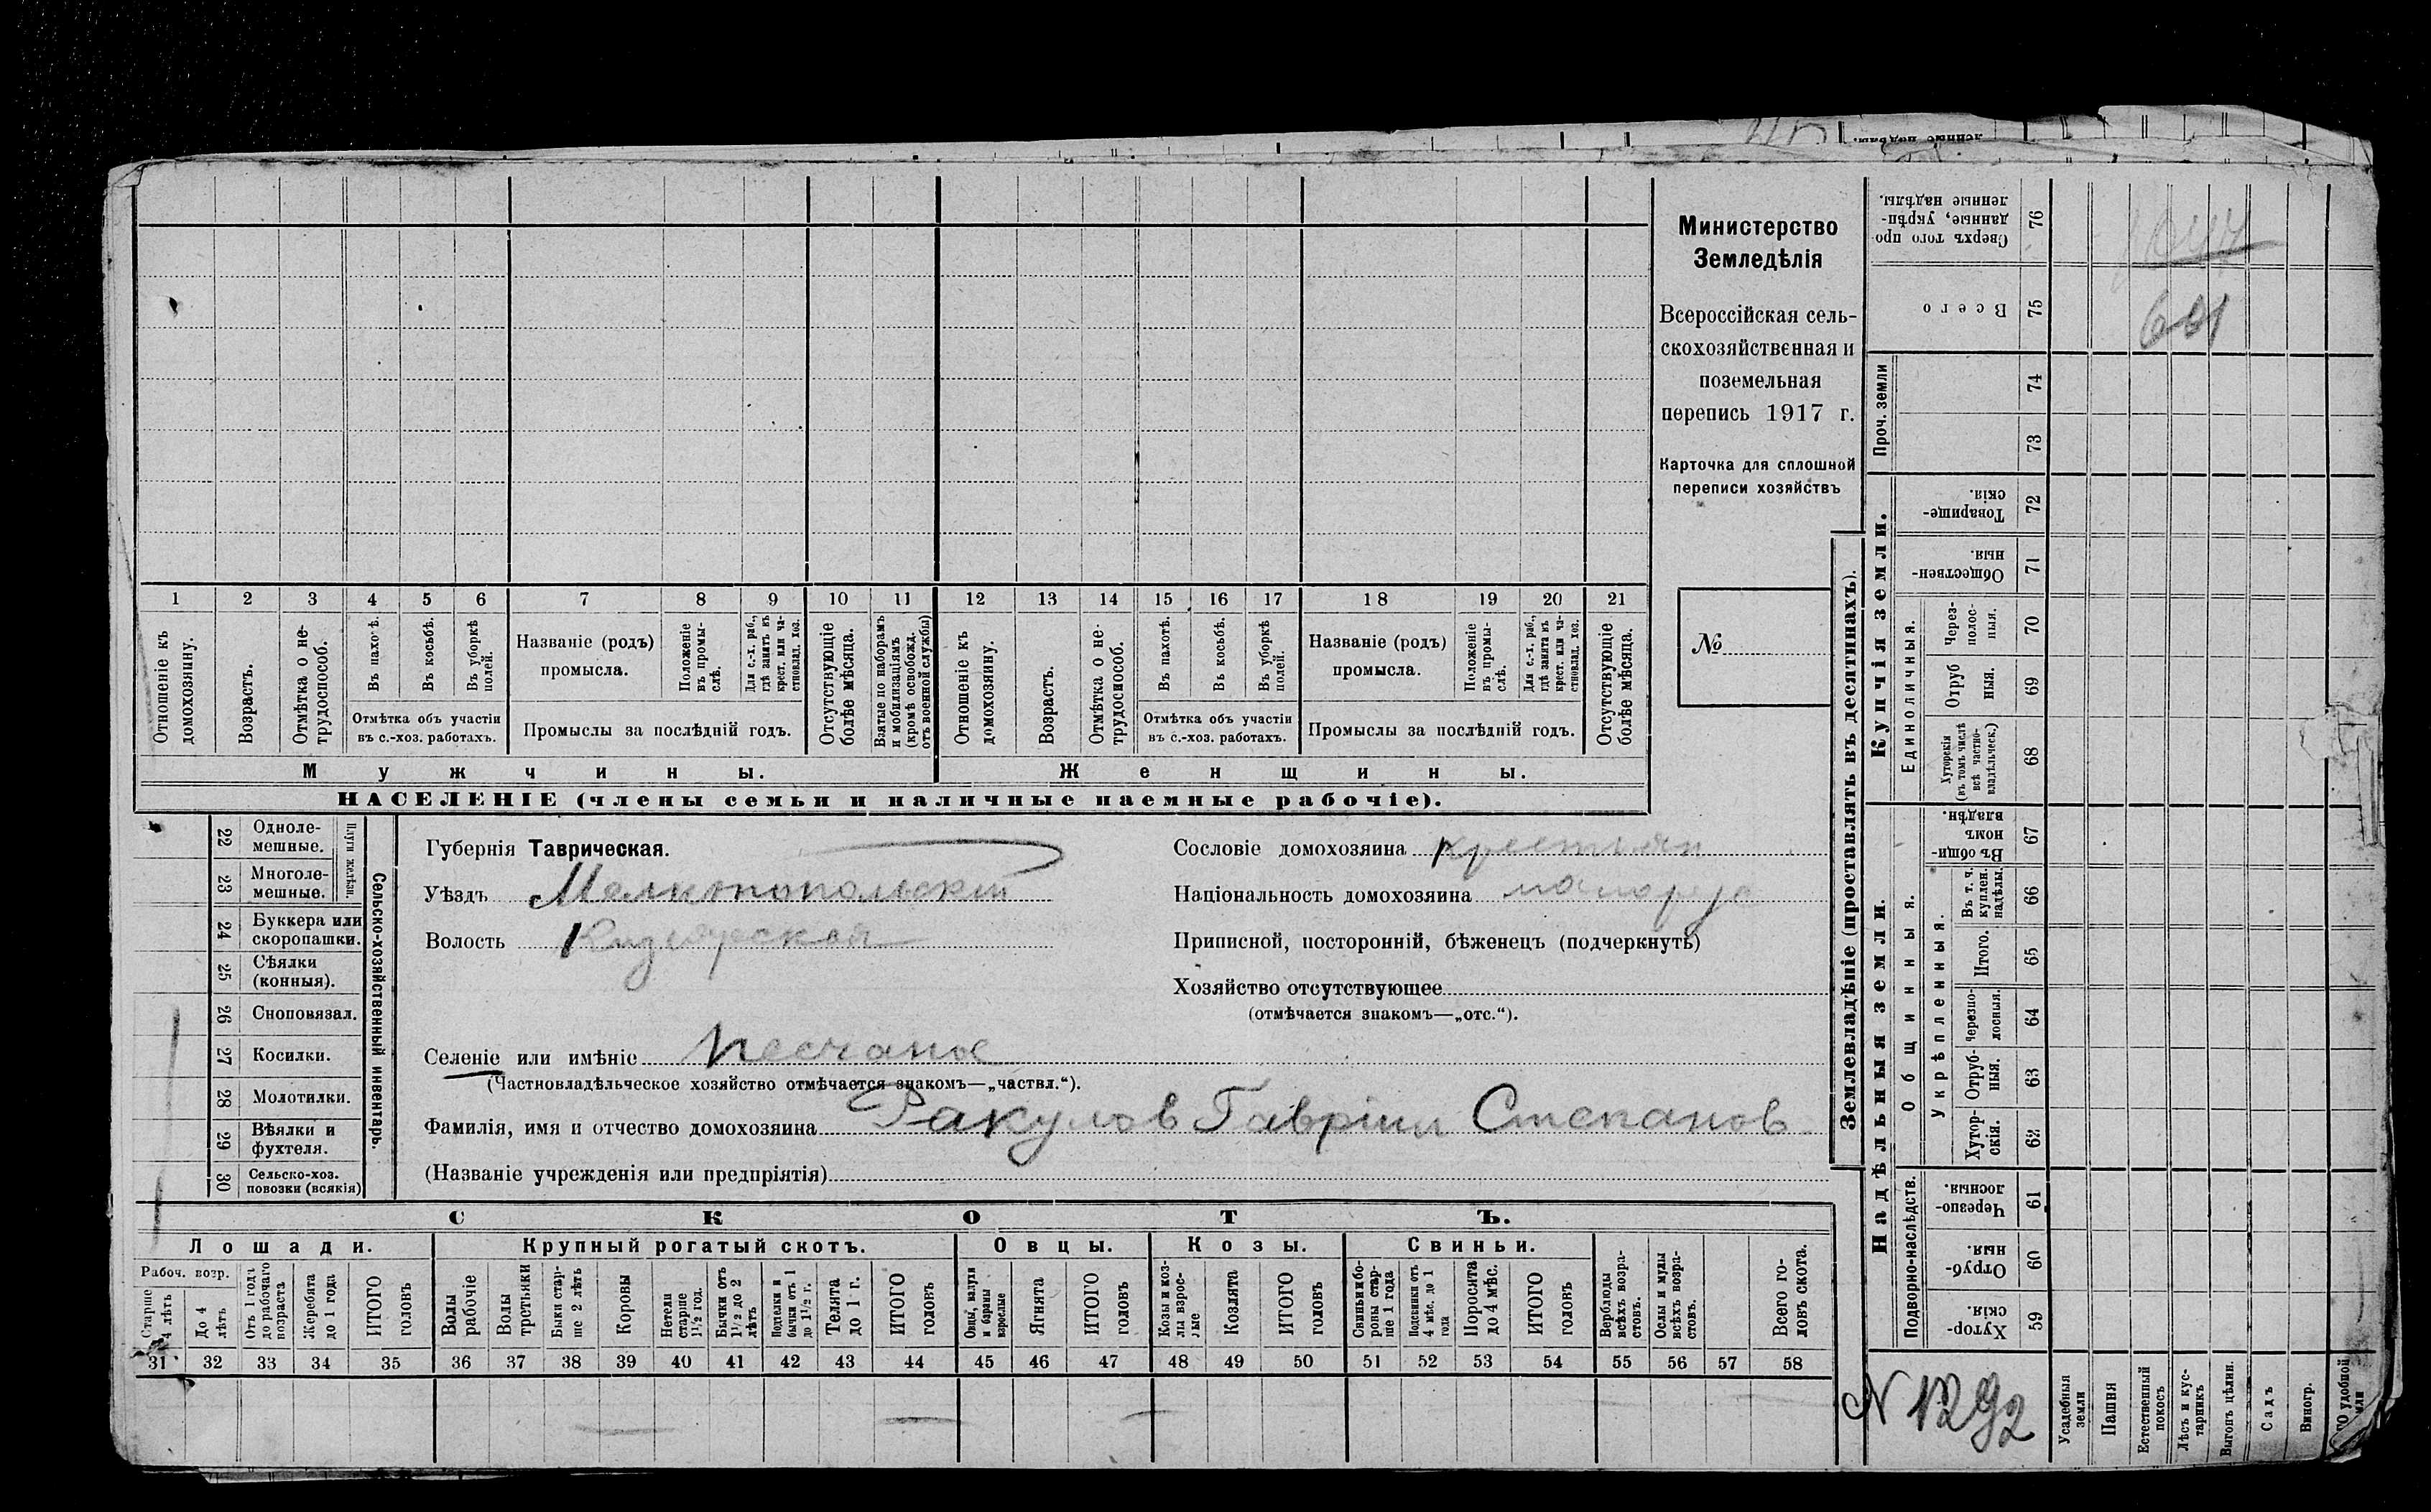 Министерство
Земледѣлія
Всероссійская сель-
скохозяйственная и
поземельная
перепись 1917 г.
Карточка для сплошной
переписи хозяйствъ
№
1 2 3 4 5 6 7 8 9 10 11 12 13 14 15 16 17 18 19 20 21
Отношеніе къ домохозяину.
Возрастъ.
Отмѣтка о не-трудоспособ.
Въ пахотѣ.
Въ косьбѣ.
Въ уборкѣ полей.
Отмѣтка объ участіи
въ с.-хоз. работахъ.
Названіе (родъ)
промысла.
Положеніе въ промы-слѣ.
Для с.-х. раб., гдѣ занятъ въ крест. или ча-стновлад. хоз.
Промыслы за послѣдній годъ.
Отсутствующіе болѣе мѣсяца.
Взятые по наборамъ и мобилизаціямъ (кромѣ освобожд. отъ военной службы)
Отношеніе къ домохозяину.
Возрастъ.
Отмѣтка о не-трудоспособ.
Въ пахотѣ.
Въ косьбѣ.
Въ уборкѣ полей.
Отмѣтка объ участіи
въ с.-хоз. работахъ.
Названіе (родъ)
промысла.
Положеніе въ промы-слѣ.
Для с.-х. раб., гдѣ занята въ крест. или ча-стновлад. хоз.
Промыслы за послѣдній годъ.
Отсутствующіе болѣе мѣсяца.
Мужчины.
Женщины.
НАСЕЛЕНІЕ (члены семьи и наличные наемные рабочіе).
22 Одноле-мешные.
23 Многоле-мешные.
Плуги желѣзн.
24 Буккера или скоропашки.
25 Сѣялки (конныя).
26 Сноповязал.
27 Косилки.
28 Молотилки.
29 Вѣялки и фухтеля.
30 Сельско-хоз. повозки (всякія)
Сельско-хозяйственный инвентарь.
Губернія Таврическая.
Уѣздъ Мелитопольскій
Волость
Сословіе домохозяина крестьян
Національность домохозяина малорус
Приписной, посторонній, бѣженецъ (подчеркнуть)
Хозяйство отсутствующее
(отмѣчается знакомъ—„отс.“).
Селеніе или имѣніе Песчаное
(Частновладѣльческое хозяйство отмѣчается знакомъ—„частвл.“).
Фамилія, имя и отчество домохозяина Ракулов Гавріил Степанов
(Названіе учрежденія или предпріятія)
СКОТЪ.
Лошади.
Крупный рогатый скотъ.
Овцы.
Козы.
Свиньи.
Рабоч. возр.
Старше 4 лѣтъ
До 4 лѣтъ
Отъ 1 года до рабочаго возраста
Жеребята до 1 года
ИТОГО головъ
Волы рабочіе
Волы тротьяки
Быки стар-ше 2 лѣтъ
Коровы
Нетели старше 1 1/2 год.
Бычки отъ 1 1/2 до 2 лѣтъ
Подтелки и бычки отъ 1 до 1 1/2 г.
Телята до 1 г.
ИТОГО головъ
Овцы, валухи и бараны взрослые
Ягнята
ИТОГО головъ
Козы и коз-лы взрос-лые
Козлята
ИТОГО головъ
Свиньи и бо-ровы стар-ше 1 года
Подсвинки отъ 4 мѣс. до 1 года
Поросята до 4 мѣс.
ИТОГО головъ
Верблюды всѣхъ возра-стовъ.
Ослы и мулы всѣхъ возра-стовъ.
Всего го-ловъ скота.
31 32 33 34 35 36 37 38 39 40 41 42 43 44 45 46 47 48 49 50 51 52 53 54 55 56 57 58
Землевладѣніе (проставлять въ десятинахъ).
Сверхъ того про-данные, укрѣп-ленные надѣлы. 76
Всего 75
Проч. земли
74
73
Купчія земли.
Товарище-скія. 72
Обществен-ныя. 71
Единоличныя.
Через-полос-ныя. 70
Отруб-ныя. 69
Хуторскія (въ томъ числѣ всѣ частно-владѣльческ.) 68
Надѣльныя земли.
Общинныя.
Въ общи-номъ владѣн. 67
Укрѣпленныя.
Въ т. ч. куплен. надѣлы. 66
Итого. 65
Черезпо-лосныя. 64
Отруб-ныя. 63
Хутор-скія. 62
Подворно-наслѣдств.
Черезпо-лосныя. 61
Отруб-ныя. 60
Хутор-скія. 59
N 1292
Усадебныя земли
Пашня
Естественный покосъ
Лѣсъ и кус-тарникъ
Выгонъ цѣлин.
Садъ
Виногр.
удобной